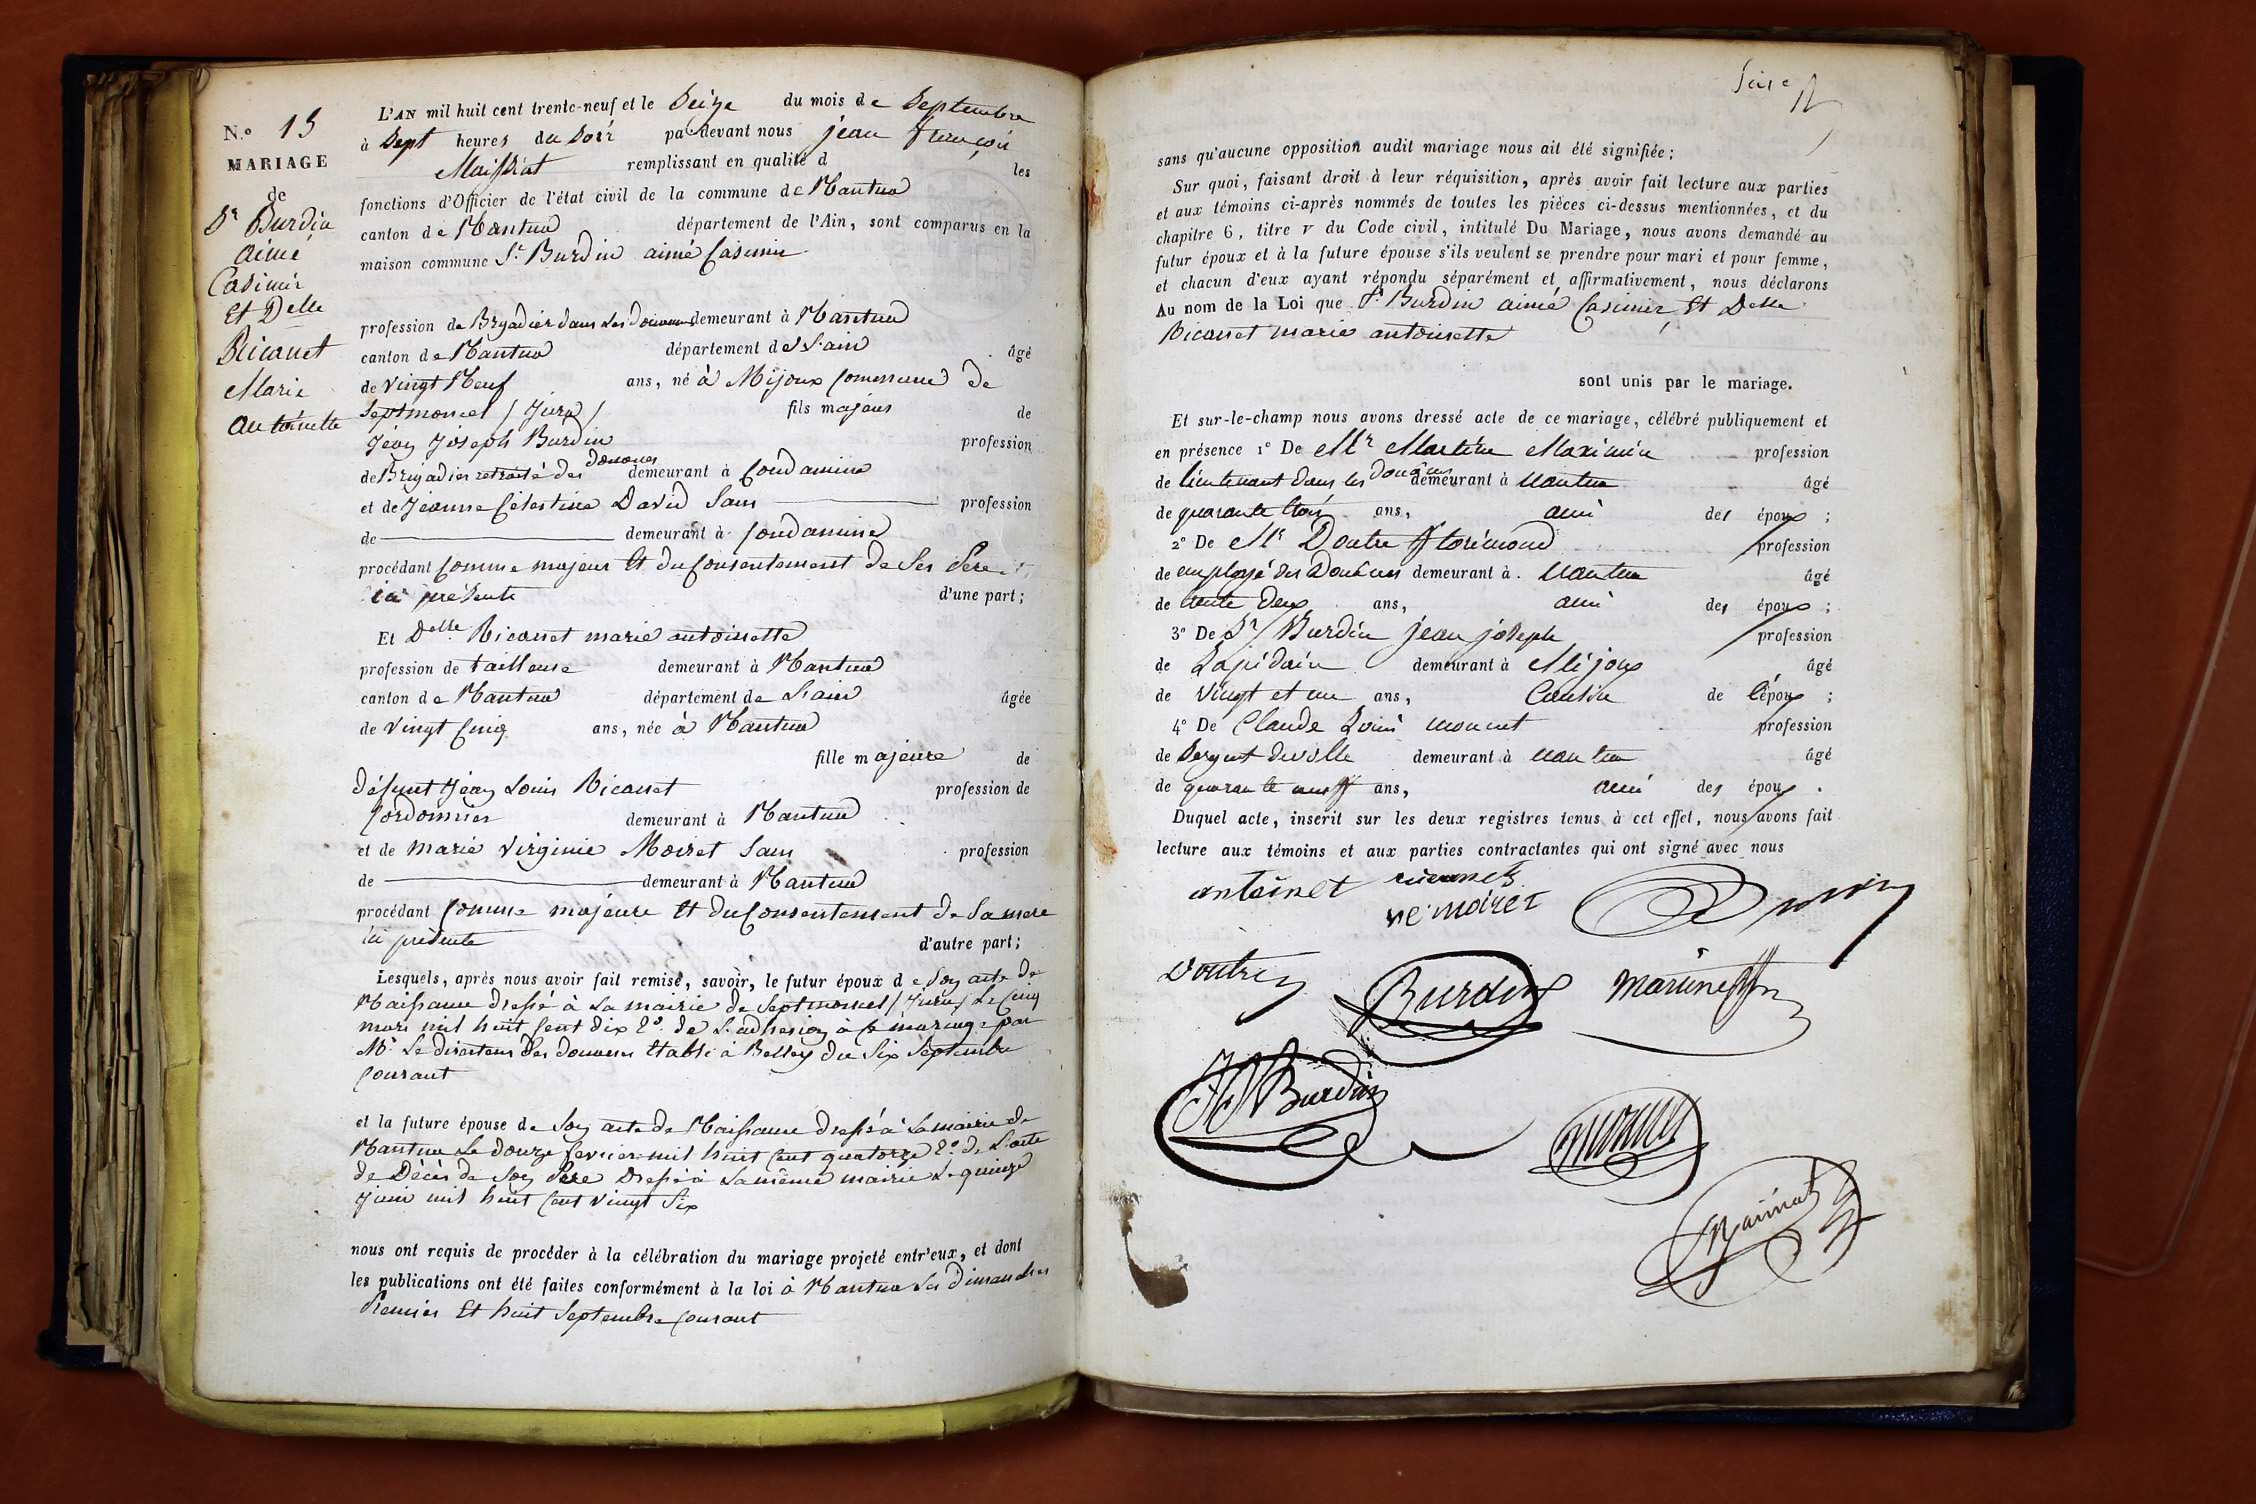 N.º 15
MARIAGE
de
Sr Burdin
aimé
Casimir
Et Delle
Bicanet
Marie
antoinette
L'AN mil huit cent trente-neuf et le Seize du mois de Septembre
à Sept heures du Soir par devant nous jean françois
remplissant en qualité d les
fonctions d'Officier de l'état civil de la commune de Nantua
canton de Nantua département de l'Ain, sont comparus en la
maison commune Sr Burdin aimé Casimir
profession de Brigadier dans Les douanes demeurant à Nantua
canton de Nantua département de L'ain âgé
de vingt Neuf ans, né à Mijoux Commune de
Septmoncel / Jura / fils majeur de
Jean Joseph Burdin profession
de Brigadier retraité des douanes demeurant à Condamine
et de Jeanne Célestine David Sans profession
de demeurant à Condamine
procédant Comme majeur Et du Consentement de Ses Père
ici présente d'une part;
Et Delle Bicanet marie antoinette
profession de tailleuse demeurant à Nantua
canton de Nantua département de L'ain âgée
de vingt Cinq ans, née à Nantua
fille majeure de
défunt Jean Louis Bicanet profession de
Cordonnier demeurant à Nantua
et de marie virginie Moiret Sans profession
de demeurant à Nantua
procédant Comme majeure Et du Consentement de Sa mere
ici présente d'autre part;
Lesquels, après nous avoir fait remise, savoir, le futur époux de Son acte de
Naissance dressé à La mairie de Septmoncel / Jura / Le Cinq
mars mil huit Cent dix 2º. de L'adhesion à Ce mariage par
Mr Le directeur des douanes Etabli à Belley du Six Septembre
Courant
et la future épouse de Son acte de Naissance dressé à La mairie de
Nantua Le douze fevrier mil huit Cent quatorze 2º. de L'acte
de Décès de Son Père Dressé à La même mairie Le quinze
Juin mil huit Cent vingt Six
nous ont requis de procéder à la célébration du mariage projeté entr'eux, et dont
les publications ont été faites conformément à la loi à Nantua Les Dimanches
Premier Et huit Septembre Courant
Seize
sans qu'aucune opposition audit mariage nous ait été signifiée;
Sur quoi, faisant droit à leur réquisition, après avoir fait lecture aux parties
et aux témoins ci-après nommés de toutes les pièces ci-dessus mentionnées, et du
chapitre 6, titre v du Code civil, intitulé Du Mariage, nous avons demandé au
futur époux et à la future épouse s'ils veulent se prendre pour mari et pour femme,
et chacun d'eux ayant répondu séparément et affirmativement, nous déclarons
Au nom de la Loi que Sr Burdin aimé Casimir Et Delle
Bicanet marie antoinette
sont unis par le mariage.
Et sur-le-champ nous avons dressé acte de ce mariage, célébré publiquement et
en présence 1º De Mr Martine Maximin profession
de lieutenant dans les douanes demeurant à Nantua âgé
de quarante trois ans, ami des époux ;
2º De Mr Doutre florimond profession
de employé des Douanes demeurant à Nantua âgé
de trente deux ans, ami des époux ;
3º De Sr Burdin jean joseph profession
de Lapidaire demeurant à Mijoux âgé
de vingt et un ans, Cousin de l'époux ;
4º De Claude Louis monnet profession
de Sergent de ville demeurant à Nantua âgé
de quarante neuf ans, ami des époux .
Duquel acte, inscrit sur les deux registres tenus à cet effet, nous avons fait
lecture aux témoins et aux parties contractantes qui ont signé avec nous
antoinet
ve moiret
Burdin
Doutre
Burdin
Martine
JJ Burdin
monnet